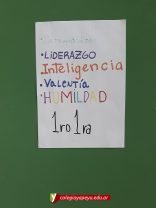 •LiDERAZGO
•InteligenciA
•VALENTÍA
•HUMILDAD
1ro 1ra
colegioyapeyu.edu.ar